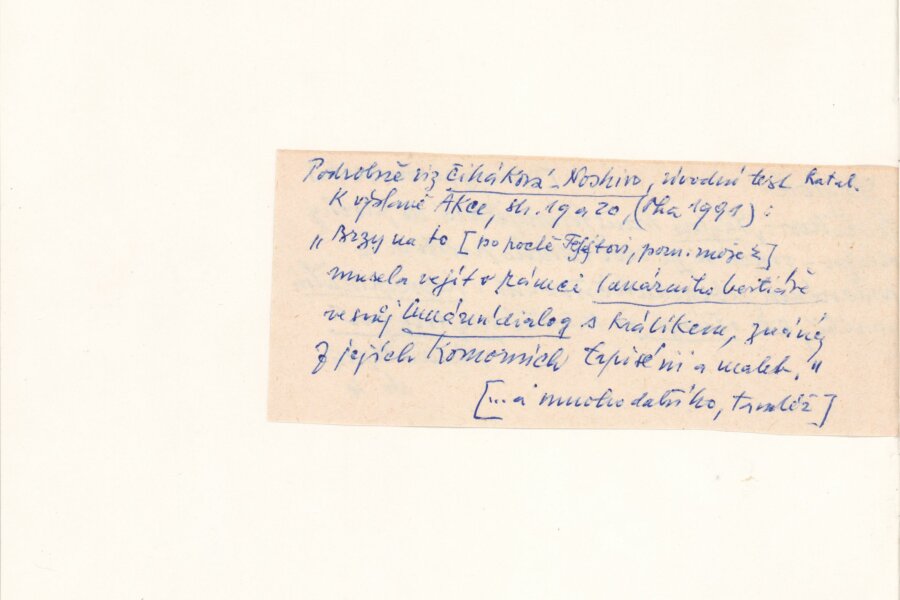 Podrobně viz Čiháková-Noshiro, úvodní text katal.
K výstavě Akce, str. 19 a 20, (Pha 1991):
„Brzy na to [po poctě Fejtovi, pozn. moje]
musela vejít v rámci lunárního bestiáře
ve svůj lunární dialog s králíkem, známý
z jejích Komorních tapisérií a maleb."
[...a mnoho dalšího, tamtéž]